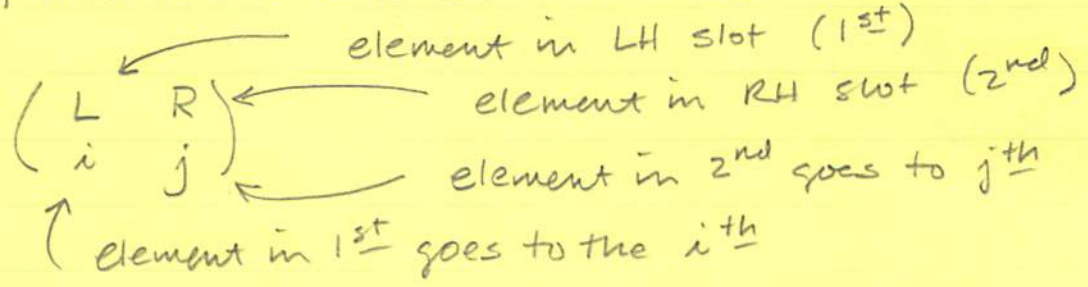 element in LH slot (1st)
L R
element in RH slot (2nd)
i j
element in 2nd goes to jth
element in 1st goes to the ith